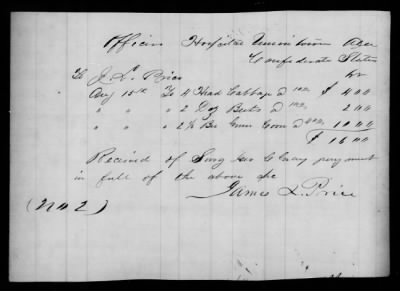 Officers Hospital Uniontown Ala
Confederate States
Dr
To J. L. Price
Aug 15th To 4 Head Cabbage @ 100 $ 4 00
" " " 2 Doz Beets @ 100 2 00
" " " 2 ½ Bu Green Corn @ 400 10 00
$ 16 00
Received of Surg Geo C Gray payment
in full of the above
James L. Price
(No 2)